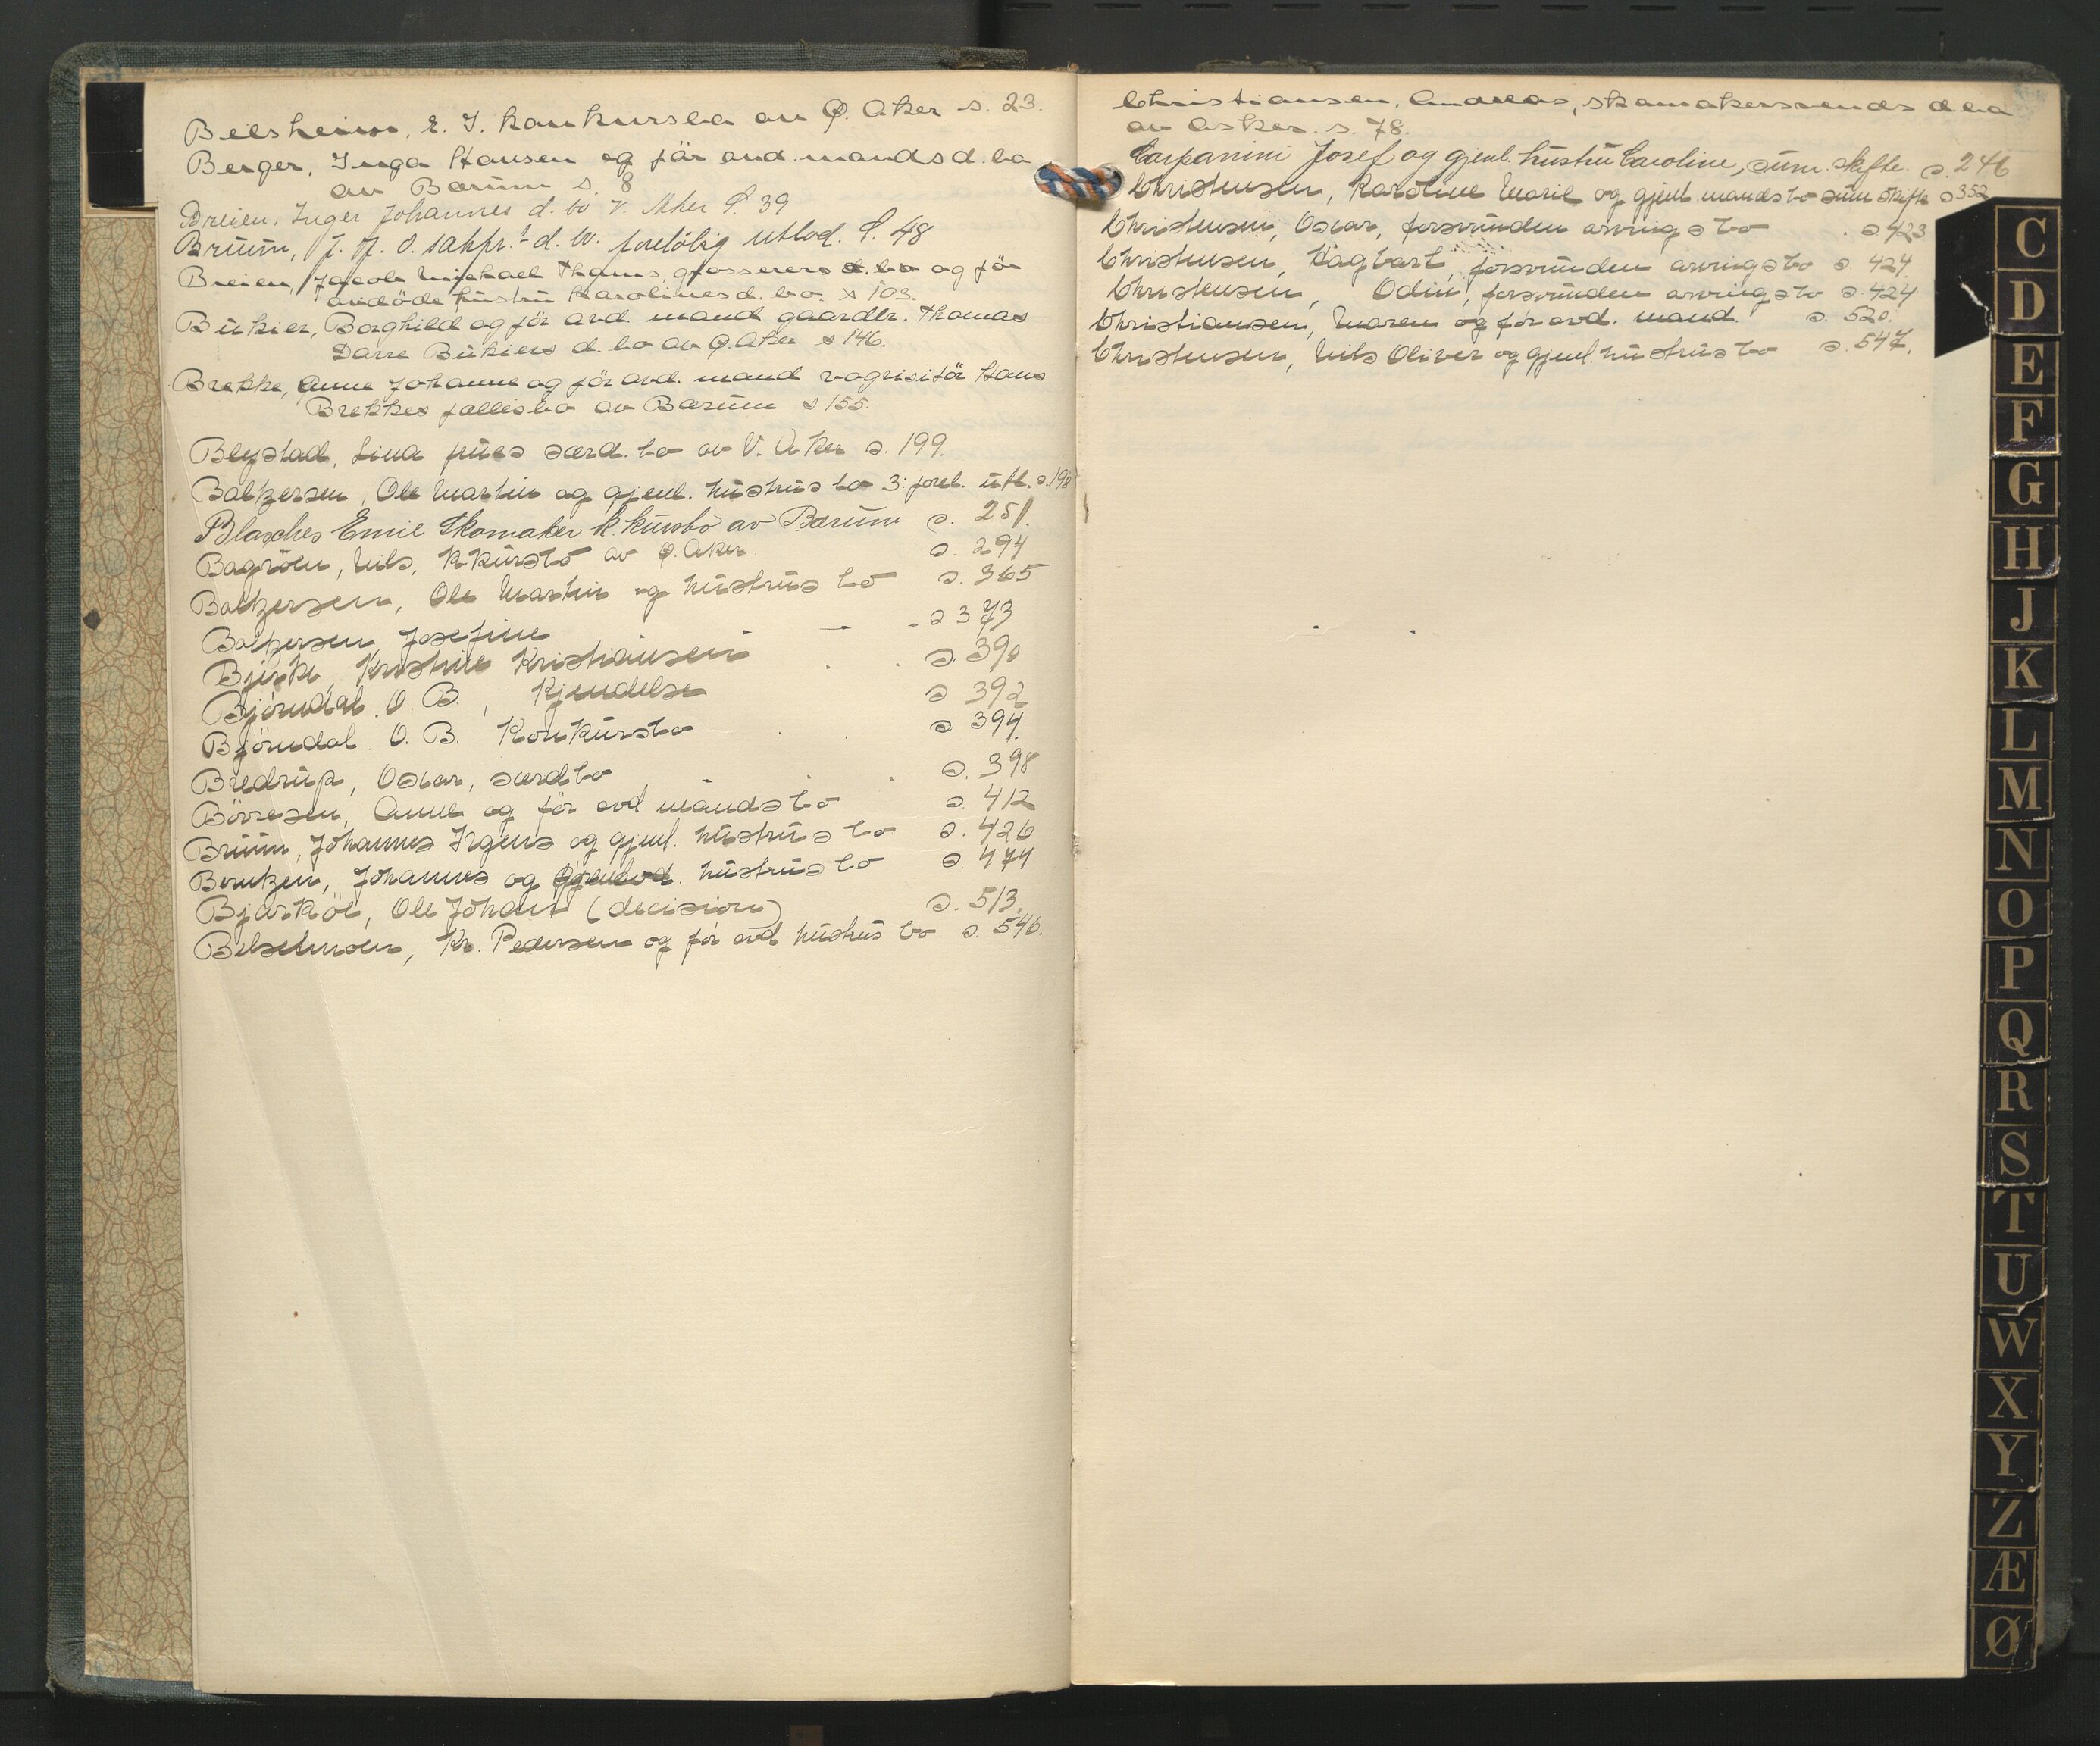 Beilsheim, E. J. konkursbo av Ø. Aker s. 23.
Berger, Inga Hansen og før avd. mands d. bo
av Bærum s. 8
Breien, Inger Johannes d. bo V. Aker S. 39
Bruun, J. J. O. sakfr. d. bo. foreløbig utlod. S. 48
Breien, Jacob Michael Thams, grosserers d. bo og før
avdöde hustru Karolines d. bo. s 103.
Bükier, Borghild og för avd. mand gaardbr. Thomas
Darre Bükiers d. bo av Ø. Aker s 146.
Brekke, Anne Johanne og för avd. mand Hans
Brekkes fællesbo av Bærum s 155.
Blystad, Lina særd. bo av V. Aker s. 199.
Baltzersen, Ole Martin og gjenl. hustrus bo 3: forel. utl. s. 198
Blasches Emil Skomaker k.kursbo av Bærum s. 251.
Nils, k.kursbo av Ø. Aker. s. 294
Baltzersen, Ole Martin og hustrus bo s. 365
Baltzersen, Josefine s 373
Bjerke, Kristine Kristiansen s. 390
Bjørndal O. B., Kjendelse s 392
Bjørndal O. B. Konkursbo s 394.
Bredrup, Oscar, særdbo s. 398
Börresen, Anne og för avd mands bo s. 412
Bruun, Johannes Irgens og gjenl. hustrus bo s. 426
Berntzen, Johannes og hustrus bo s. 474
Ole Johan (decision) s. 513.
Kr. Pedersen og för avd hustrus bo s. 546.
Christiansen, Andreas, skomakersvends d. bo
av Asker. s. 78.
Carpanini Josef og gjenl. hustru Caroline, sum. skifte. s. 246
Christensen, Karoline Marie og gjenl. mands bo sum skifte s 352
Christensen, Oscar, forsvunden arvings bo s 423
Christensen, Hagbart, forsvunden arvings bo s. 424.
Christensen, Odin, forsvunden arvings bo s. 424
Christiansen, Maren og för avd. mand. s. 520.
Christensen, Nils Oliver og gjenl. hustrus bo s. 547.
C
D
E
F
G
H
J
K
L
M
N
O
P
Q
R
S
T
U
W
X
Y
Z
Æ
Ø